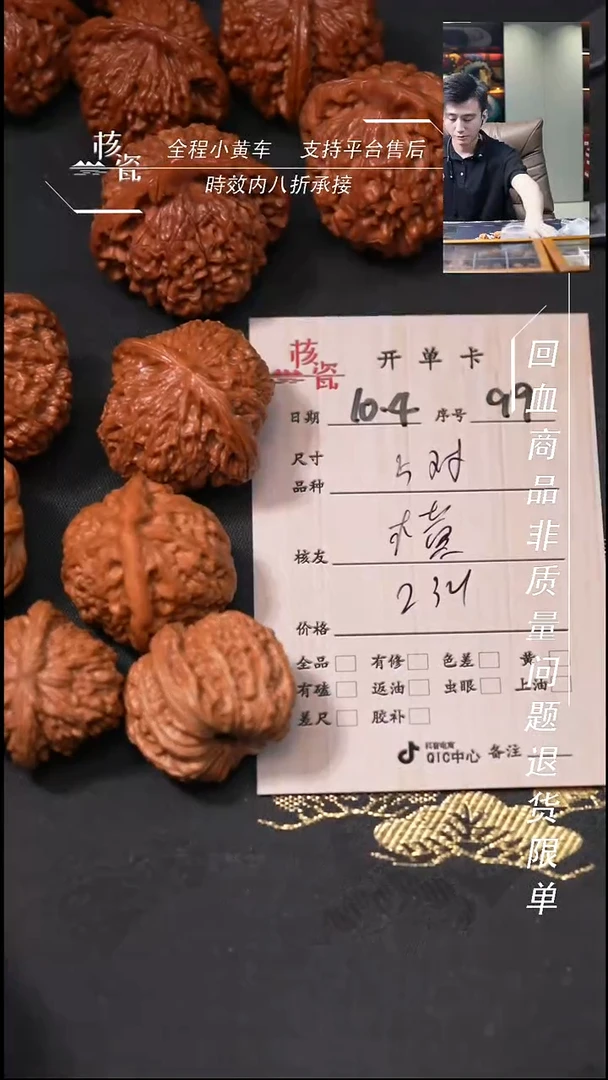 核瓷
全程小黄车 支持平台售后
時效内八折承接
回血商品非质量问题退货限单
核瓷
开单卡
日期 10.4 序号 99
尺寸
品种 5对
核友
价格
全品 有修 色差 黄
有磕 返油 虫眼 上油
差尺 胶补
抖音电商
QIC中心 备注